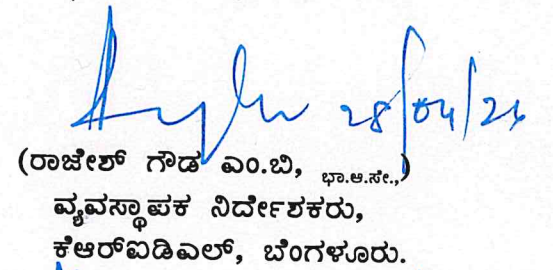 28/04/24
(ರಾಜೇಶ್ ಗೌಡ ಎಂ.ಬಿ, ಭಾ.ಆ.ಸೇ.,)
ವ್ಯವಸ್ಥಾಪಕ ನಿರ್ದೇಶಕರು,
ಕೆಆರ್‌ಐಡಿಎಲ್, ಬೆಂಗಳೂರು.